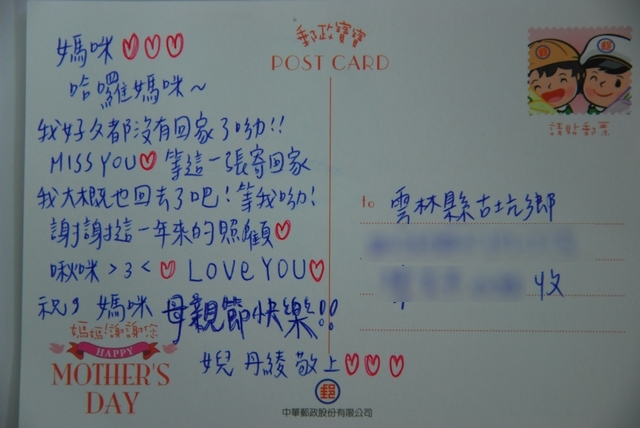 媽咪♡♡♡
哈囉媽咪~
我好久都沒有回家了呦!!
MISS YOU♡ 等這一張寄回家
我大概也回去了吧!等我呦!
謝謝這一年來的照顧♡
啾咪 >3< ♡ LOVE YOU♡
祝 媽咪 母親節快樂!!
女兒 丹綾 敬上♡♡♡
媽媽!謝謝你
HAPPY
MOTHER'S
DAY
郵政寶寶
POST CARD
請貼郵票
to 雲林縣古坑鄉
收
郵
中華郵政股份有限公司